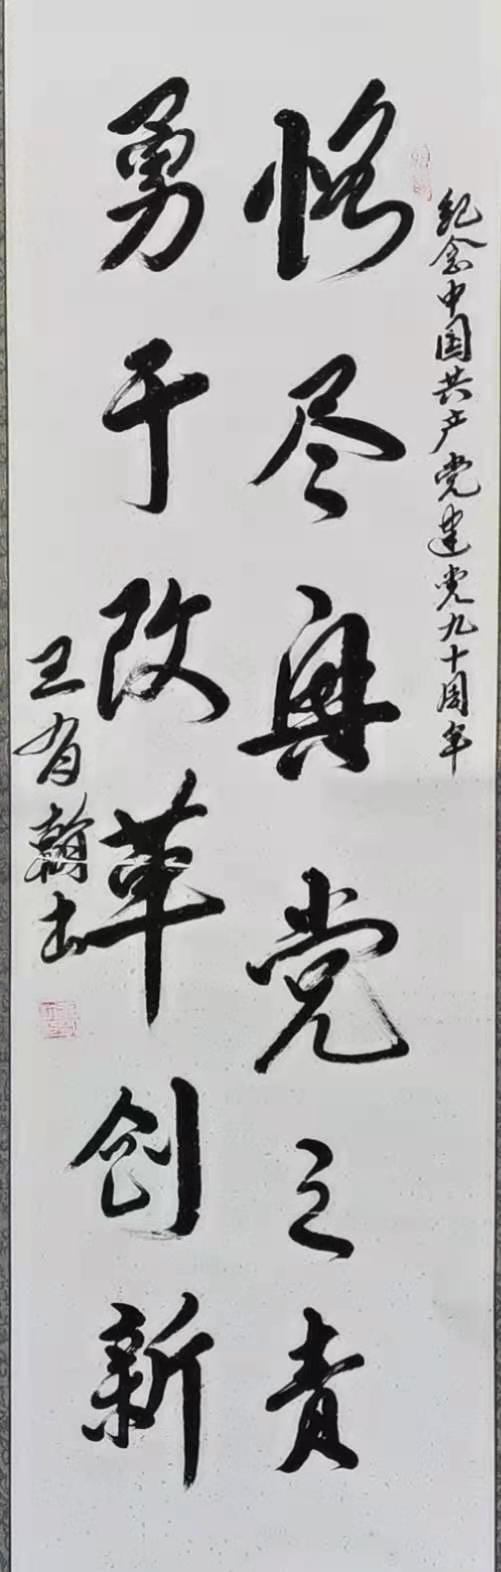 纪念中国共产党建党九十周年
恪尽兴党之责
勇于改革创新
王有翰书